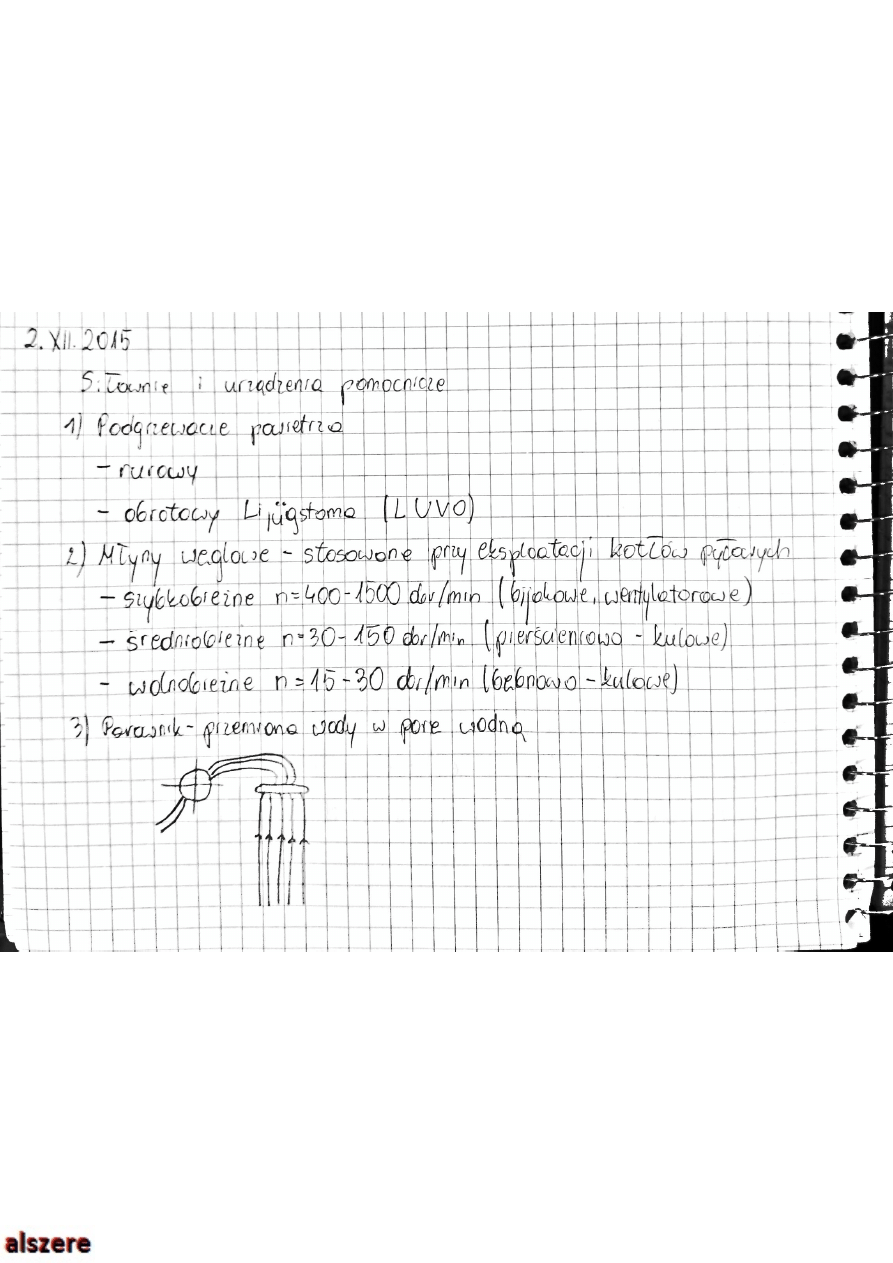 2.XII.2015
Siłownie i urządzenia pomocnicze
1) Podgrzewacze powietrza
- rurowy
- obrotowy Lijügstoma (LUVO)
2) Młyny węglowe - stosowane przy eksploatacji kotłów pyłowych
- szybkobieżne n=400-1500 obr/min (bijakowe, wentylatorowe)
- średniobieżne n=30-150 obr/min (pierścieniowo - kulowe)
- wolnobieżne n=15-30 obr/min (bębnowo - kulowe)
3) Parownik - przemiana wody w parę wodną
alszere